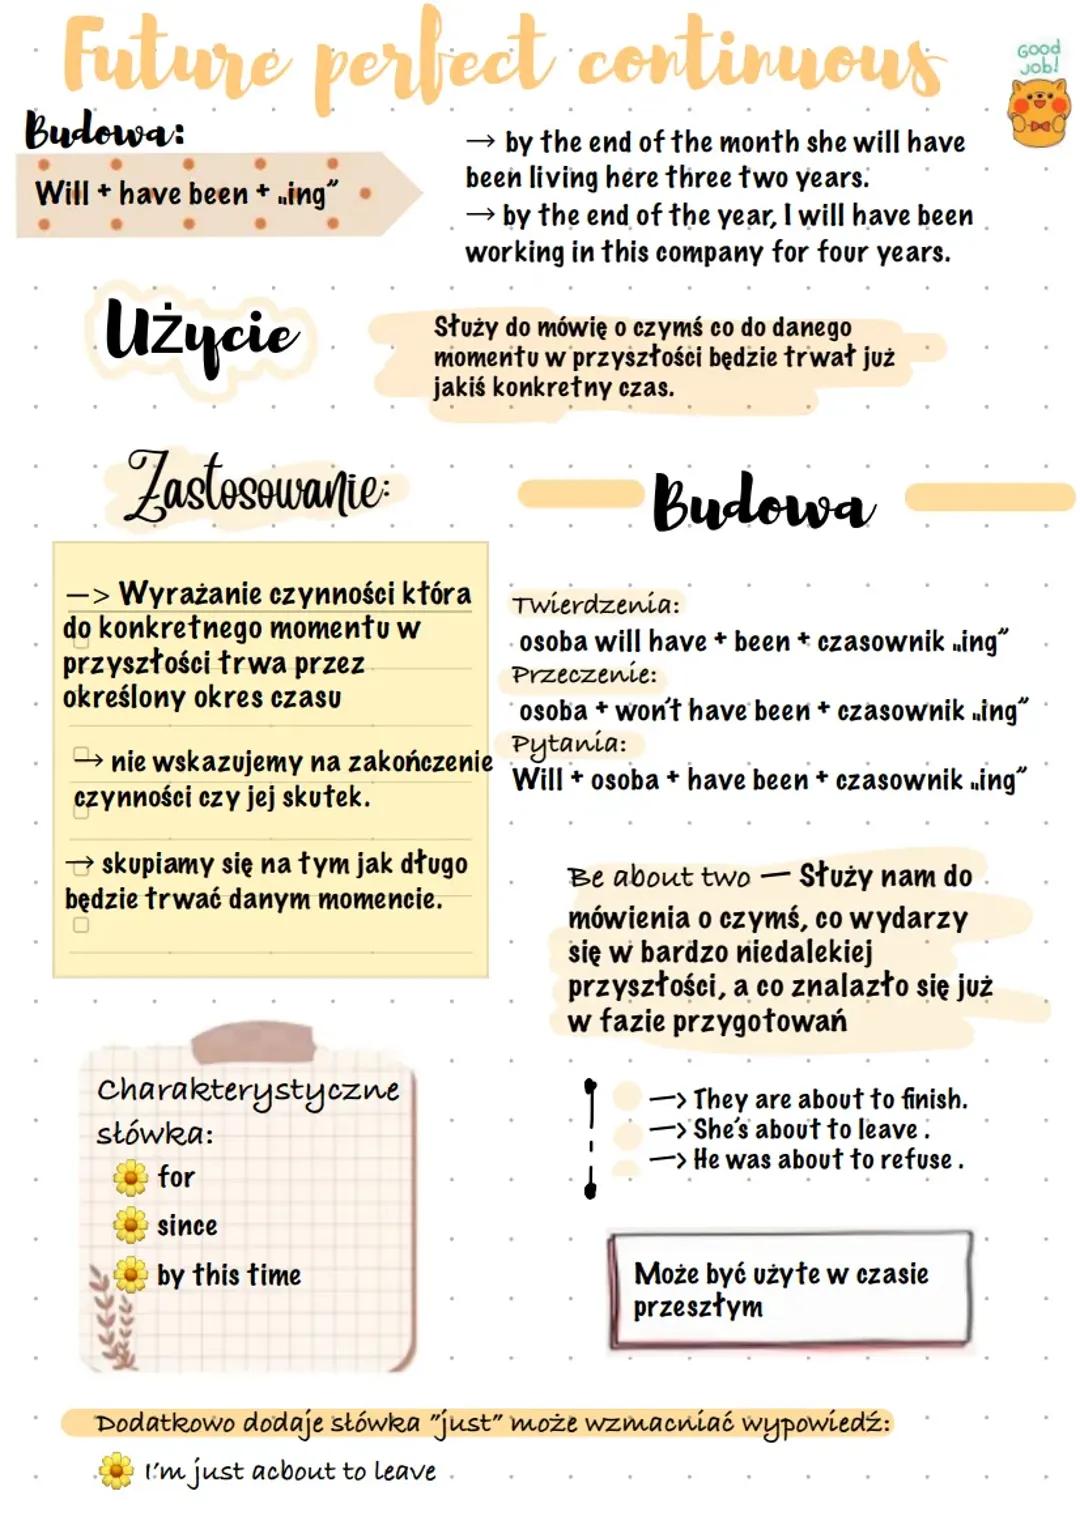 Future perfect continuous
Good
job!
Budowa:
Will + have been + „ing”
→ by the end of the month she will have
been living here three two years.
→ by the end of the year, I will have been
working in this company for four years.
Użycie
Służy do mówię o czymś co do danego
momentu w przyszłości będzie trwał już
jakiś konkretny czas.
Zastosowanie:
—> Wyrażanie czynności która
do konkretnego momentu w
przyszłości trwa przez
określony okres czasu
→ nie wskazujemy na zakończenie
czynności czy jej skutek.
→ skupiamy się na tym jak długo
będzie trwać danym momencie.
Budowa
Twierdzenia:
osoba will have + been + czasownik „ing”
Przeczenie:
osoba + won't have been + czasownik „ing”
Pytania:
Will + osoba + have been + czasownik „ing”
Be about two — Służy nam do
mówienia o czymś, co wydarzy
się w bardzo niedalekiej
przyszłości, a co znalazło się już
w fazie przygotowań
—> They are about to finish.
—> She's about to leave.
—> He was about to refuse.
Może być użyte w czasie
przeszłym
Charakterystyczne
słówka:
for
since
by this time
Dodatkowo dodaje słówka "just" może wzmacniać wypowiedź:
I'm just acbout to leave